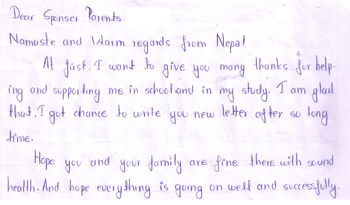 Dear Sponser Parents
Namaste and Warm regards from Nepal
At first. I want to give you many thanks for help-
ing and supporting me in school and in my study. I am glad
that, I got chance to write you new letter after so long
time.
Hope you and your family are fine there with sound
health. And hope everything is going on well and successfully.